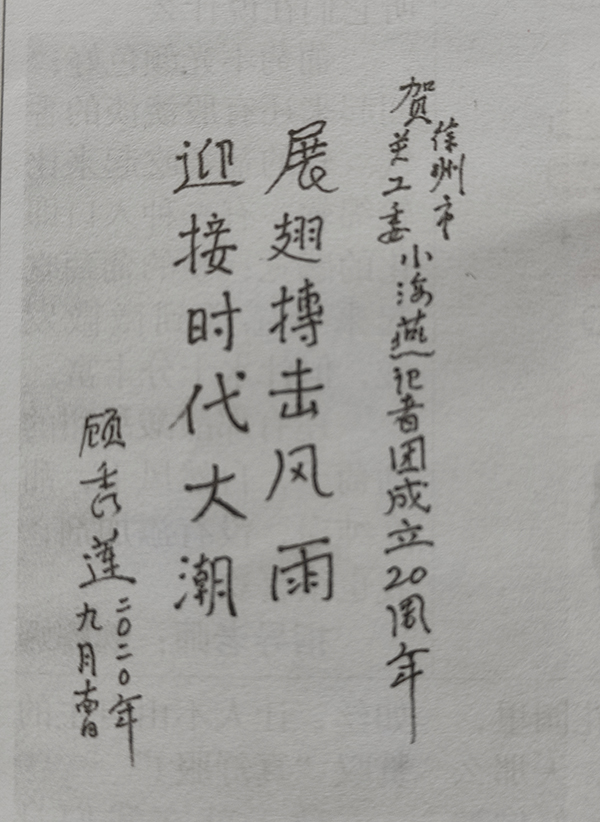 贺徐州市关工委小海燕记者团成立20周年
展翅搏击风雨
迎接时代大潮
顾秀莲
二〇二〇年
九月